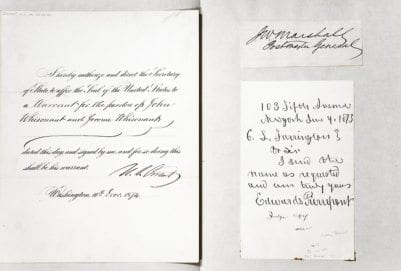 I hereby authorize and direct the Secretary
of State to affix the Seal of the United States to
a Warrant for the pardon of John
Whisonant and Jerome Whisonant
dated this day and signed by me, and for so doing this
shall be his warrant.
U. S. Grant
Washington 10th Decr. 1874.
J W Marshall
Postmaster General
103 Fifth Avenue
N. York Jan 4, 1873
C. L. Farrington
Dr Sir
I send the
name as requested
and am truly yours
Edwards Pierrepont